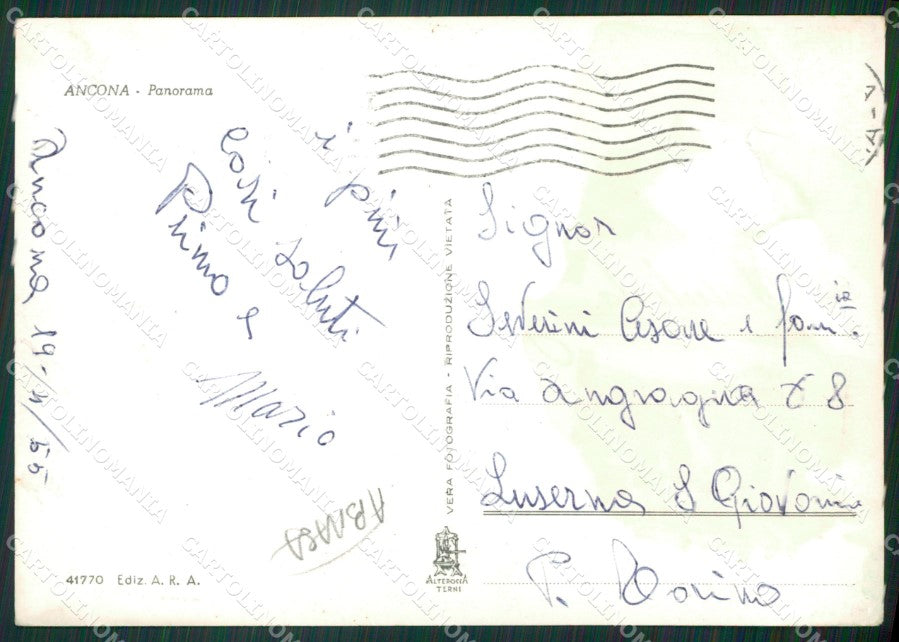 ANCONA - Panorama
Ancona, 19-4/55
i più
cari saluti
Primo e
Mario
Signor
Severini Cesare e fam.ia
Via Angrogna 8
Luserna S Giovanni
P. Torino
VERA FOTOGRAFIA - RIPRODUZIONE VIETATA
ALTEROCCA
TERNI
41770 Ediz. A. R. A.
CARTOLINOMANIA